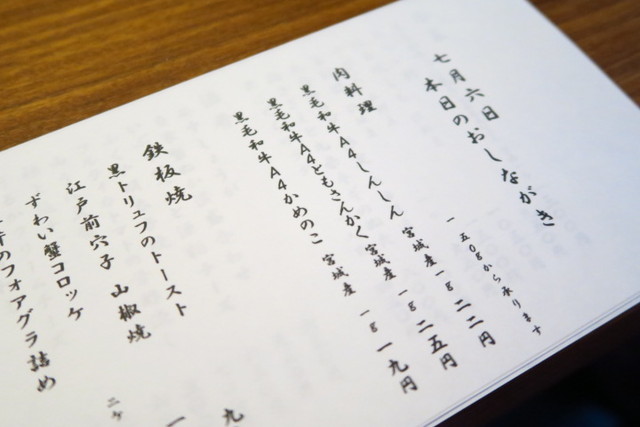 七月六日
本日のおしながき
一 五〇gから承ります
肉料理
黒毛和牛A4しんしん 宮城産 一g 二二円
黒毛和牛A4ともさんかく 宮城産 一g 二五円
黒毛和牛A4かめのこ 宮城産 一g 一九円
鉄板焼
黒トリュフのトースト 九
江戸前穴子 山椒焼 一
ずわい蟹コロッケ 二ヶ
のフォアグラ詰め